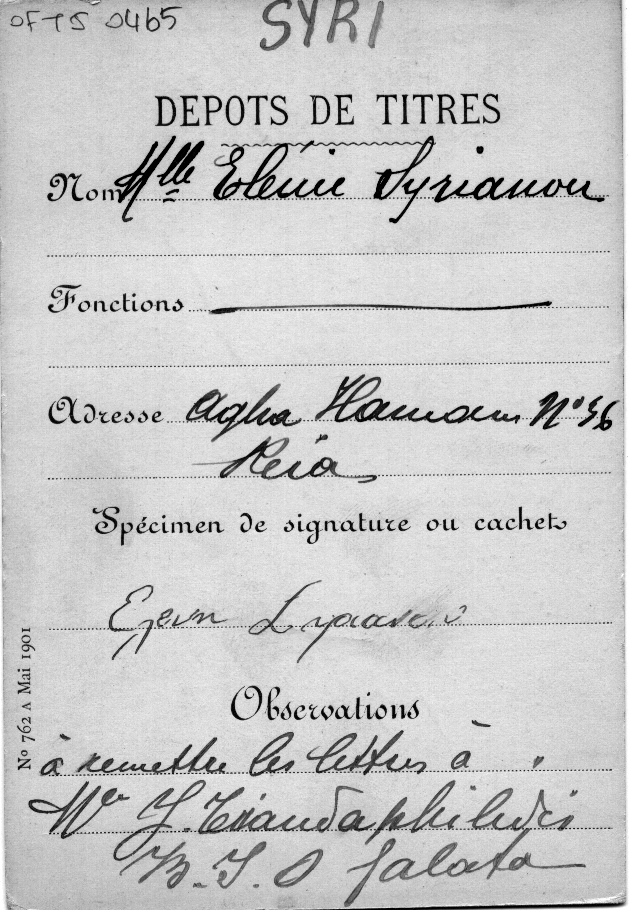 OFTS 0465
SYRI
DEPOTS DE TITRES
Nom Mlle Elénie Syrianou
Fonctions
Adresse Agha Hamam No 56
Pera
Spécimen de signature ou cachet
Ελενη
Observations
à remettre les lettres à
Mr J. Triandaphilidis
B. I. O Galata
No 762 A Mai 1901